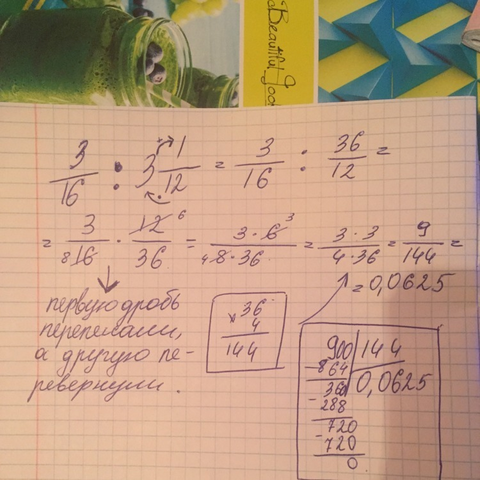 Beautiful
3/16 : 3 1/12 = 3/16 : 36/12 =
= 3/16 8 · 12 6/36 = 3 · 6 3/4 8 · 36 = 3 · 3/4 · 36 = 9/144 =
= 0,0625
первую дробь
переписали,
а другую пе-
ревернули.
36
× 4
144
900 | 144
- 864 | 0,0625
360
- 288
720
- 720
0